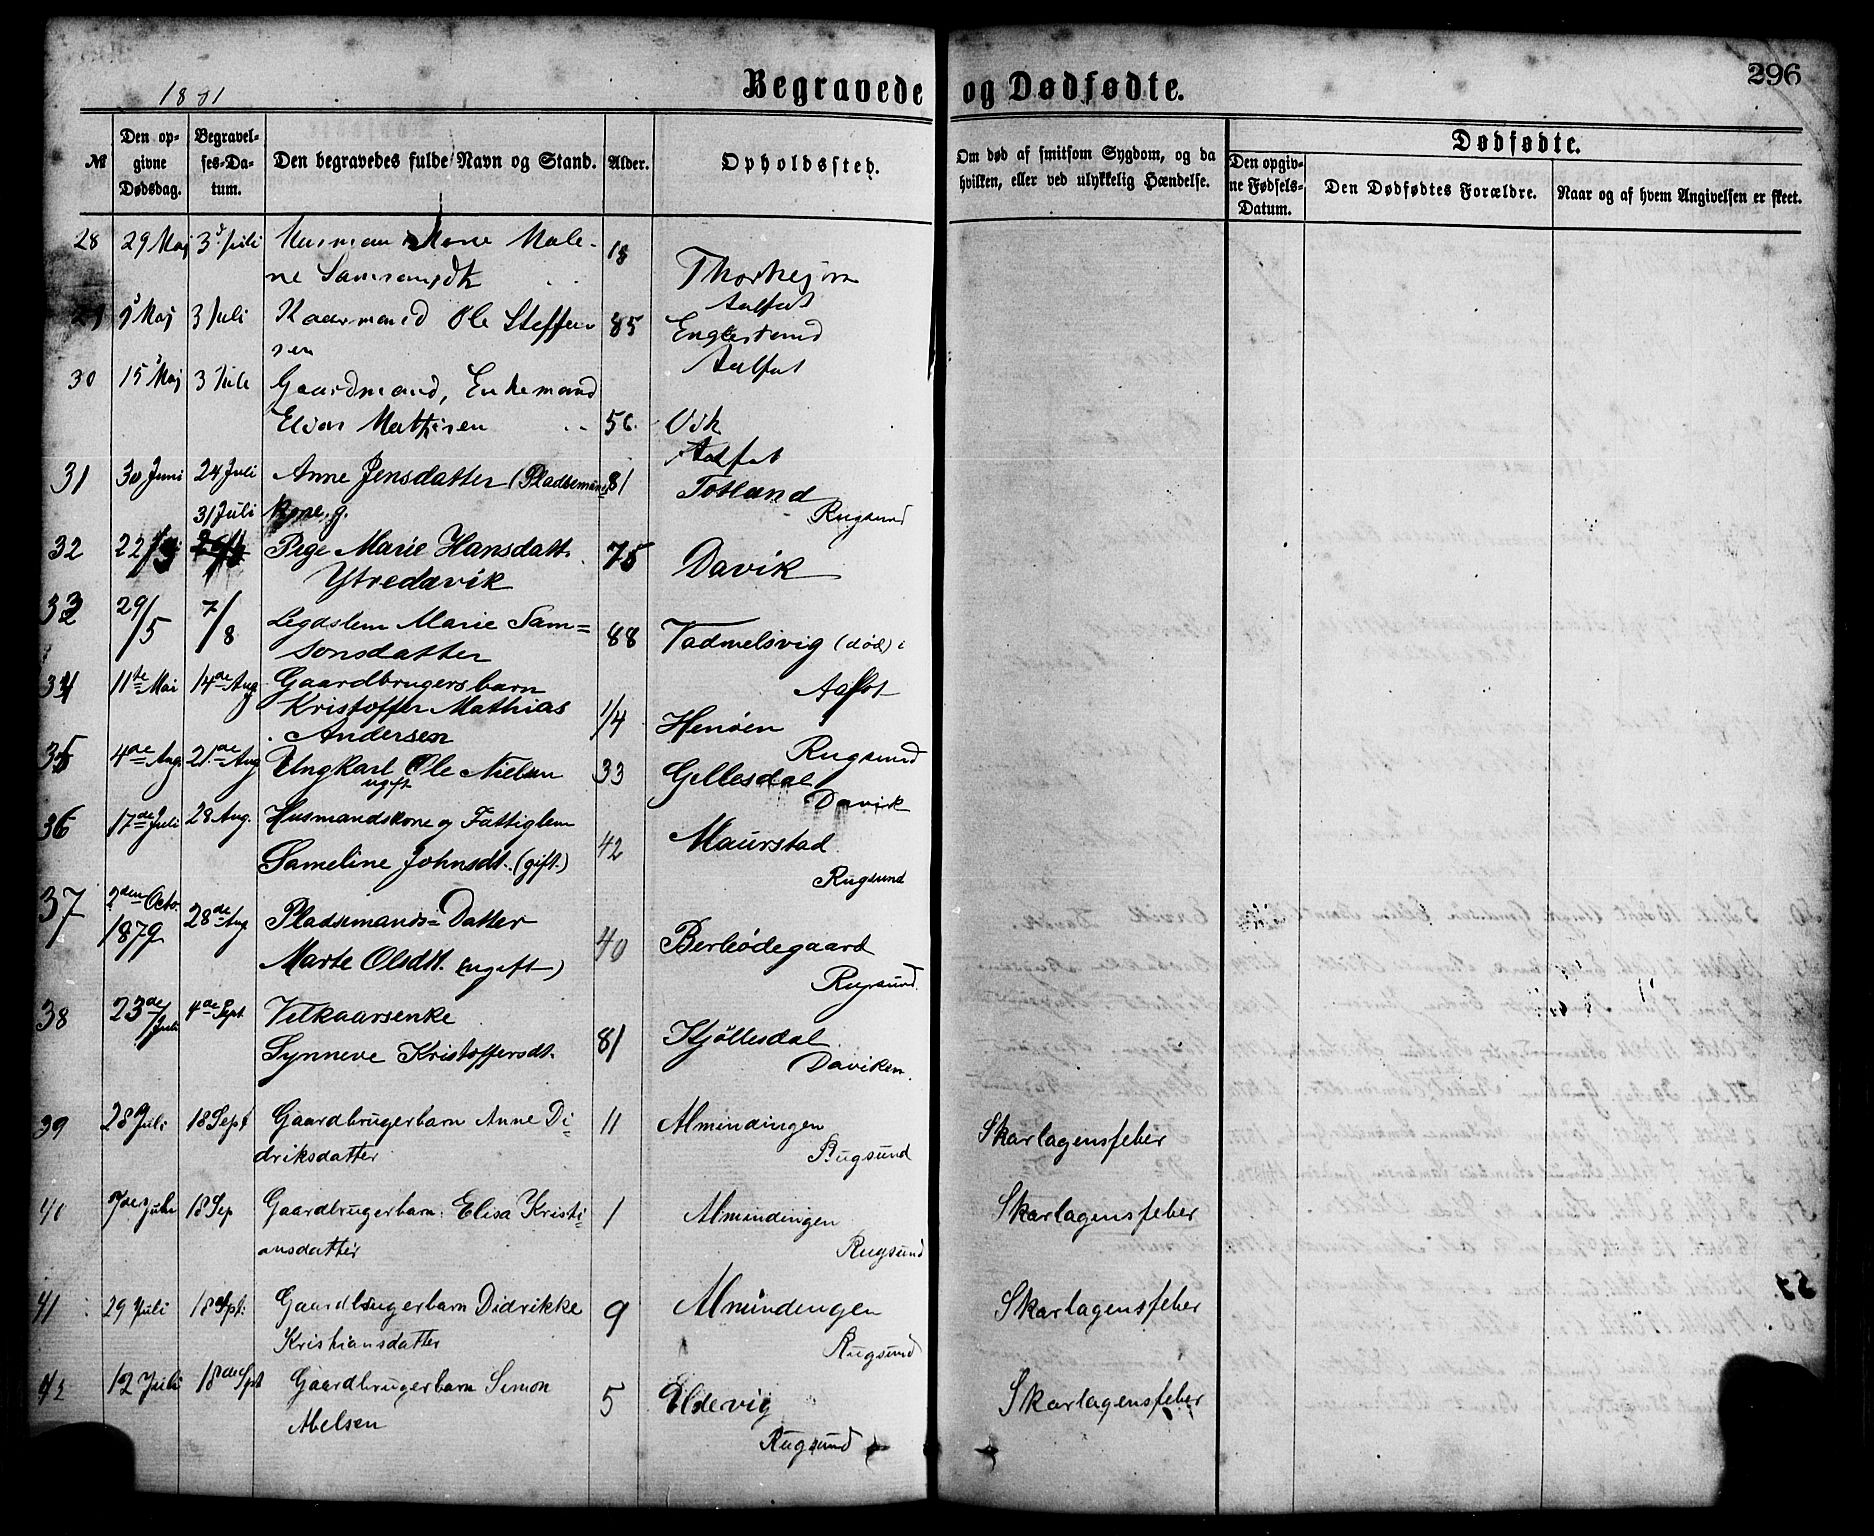 1881
Begravede og Dødfødte.
296
№
Den opgivne Dødsdag.
Begravelses-Datum.
Den begravedes fulde Navn og Stand.
Alder.
Opholdssted.
Om død af smitsom Sygdom, og da hvilken, eller ved ulykkelig Hændelse.
Dødfødte.
Den opgivne Fødsels-Datum.
Den Dødfødtes Forældre.
Naar og af hvem Angivelsen er skeet.
28 29 Maj 3 Juli Male-
ne Samsonsdtr 18
Aalfot
Maj 3 Juli Kaarmand Ole Steffen-
sen 85
Aalfot
30 15 Maj 3 Juli Gaardmand, Enkemand
Elias Mathisen 56 Vik
Aalfot
31 30 Juni 24 Juli Anne Jensdatter (Pladsemands 81 Totland
kone. g. Rugsund
32 31 Juli Pige Marie Hansdatt. 75 Davik
Ytredavik
33 29/5 7/8 Legdslem Marie Sam=
sonsdatter 88 Vadmelsvig (død) i
Aalfot
34 11te Mai 14de Aug Gaardbrugersbarn
Kristoffer Mathias 1/4 Henøen
Andersen Rugsund
35 4de Aug 21de Aug Ungkarl Ole Nielsen 33 Gellesdal
ugift Davik
36 17de Juli 28 Aug. Husmandskone og Fattiglem
Sameline Johnsdt. (gift.) 42 Maurstad
Rugsund
37 2den Octo. 1879 28de Aug Pladsemands=Datter
Marte Olsdtt. (ugift) 40 Berleødegaard
Rugsund.
38 23de/Juli 4de Sept Vilkaarsenke
Synneve Kristoffersdt. 81 Hjøllesdal
Daviken.
39 28 Juli 18 Sept Gaardbrugerbarn Anne Di= 11 Almindingen Skarlagensfeber
driksdatter Rugsund
40 7de Juli 18 Sep Gaardbrugerbarn: Elisa Kristi= 1 Almindingen Skarlagensfeber
ansdatter Rugsund
41 29 Juli 18 Spt. Gaardbrugerbarn Didrikke 9 Almindingen Skarlagensfeber
Kristiansdatter Rugsund
42 12 Juli 18de Spt Gaardbrugerbarn Simon 5 Eldevig Skarlagensfeber
Abelsen Rugsund